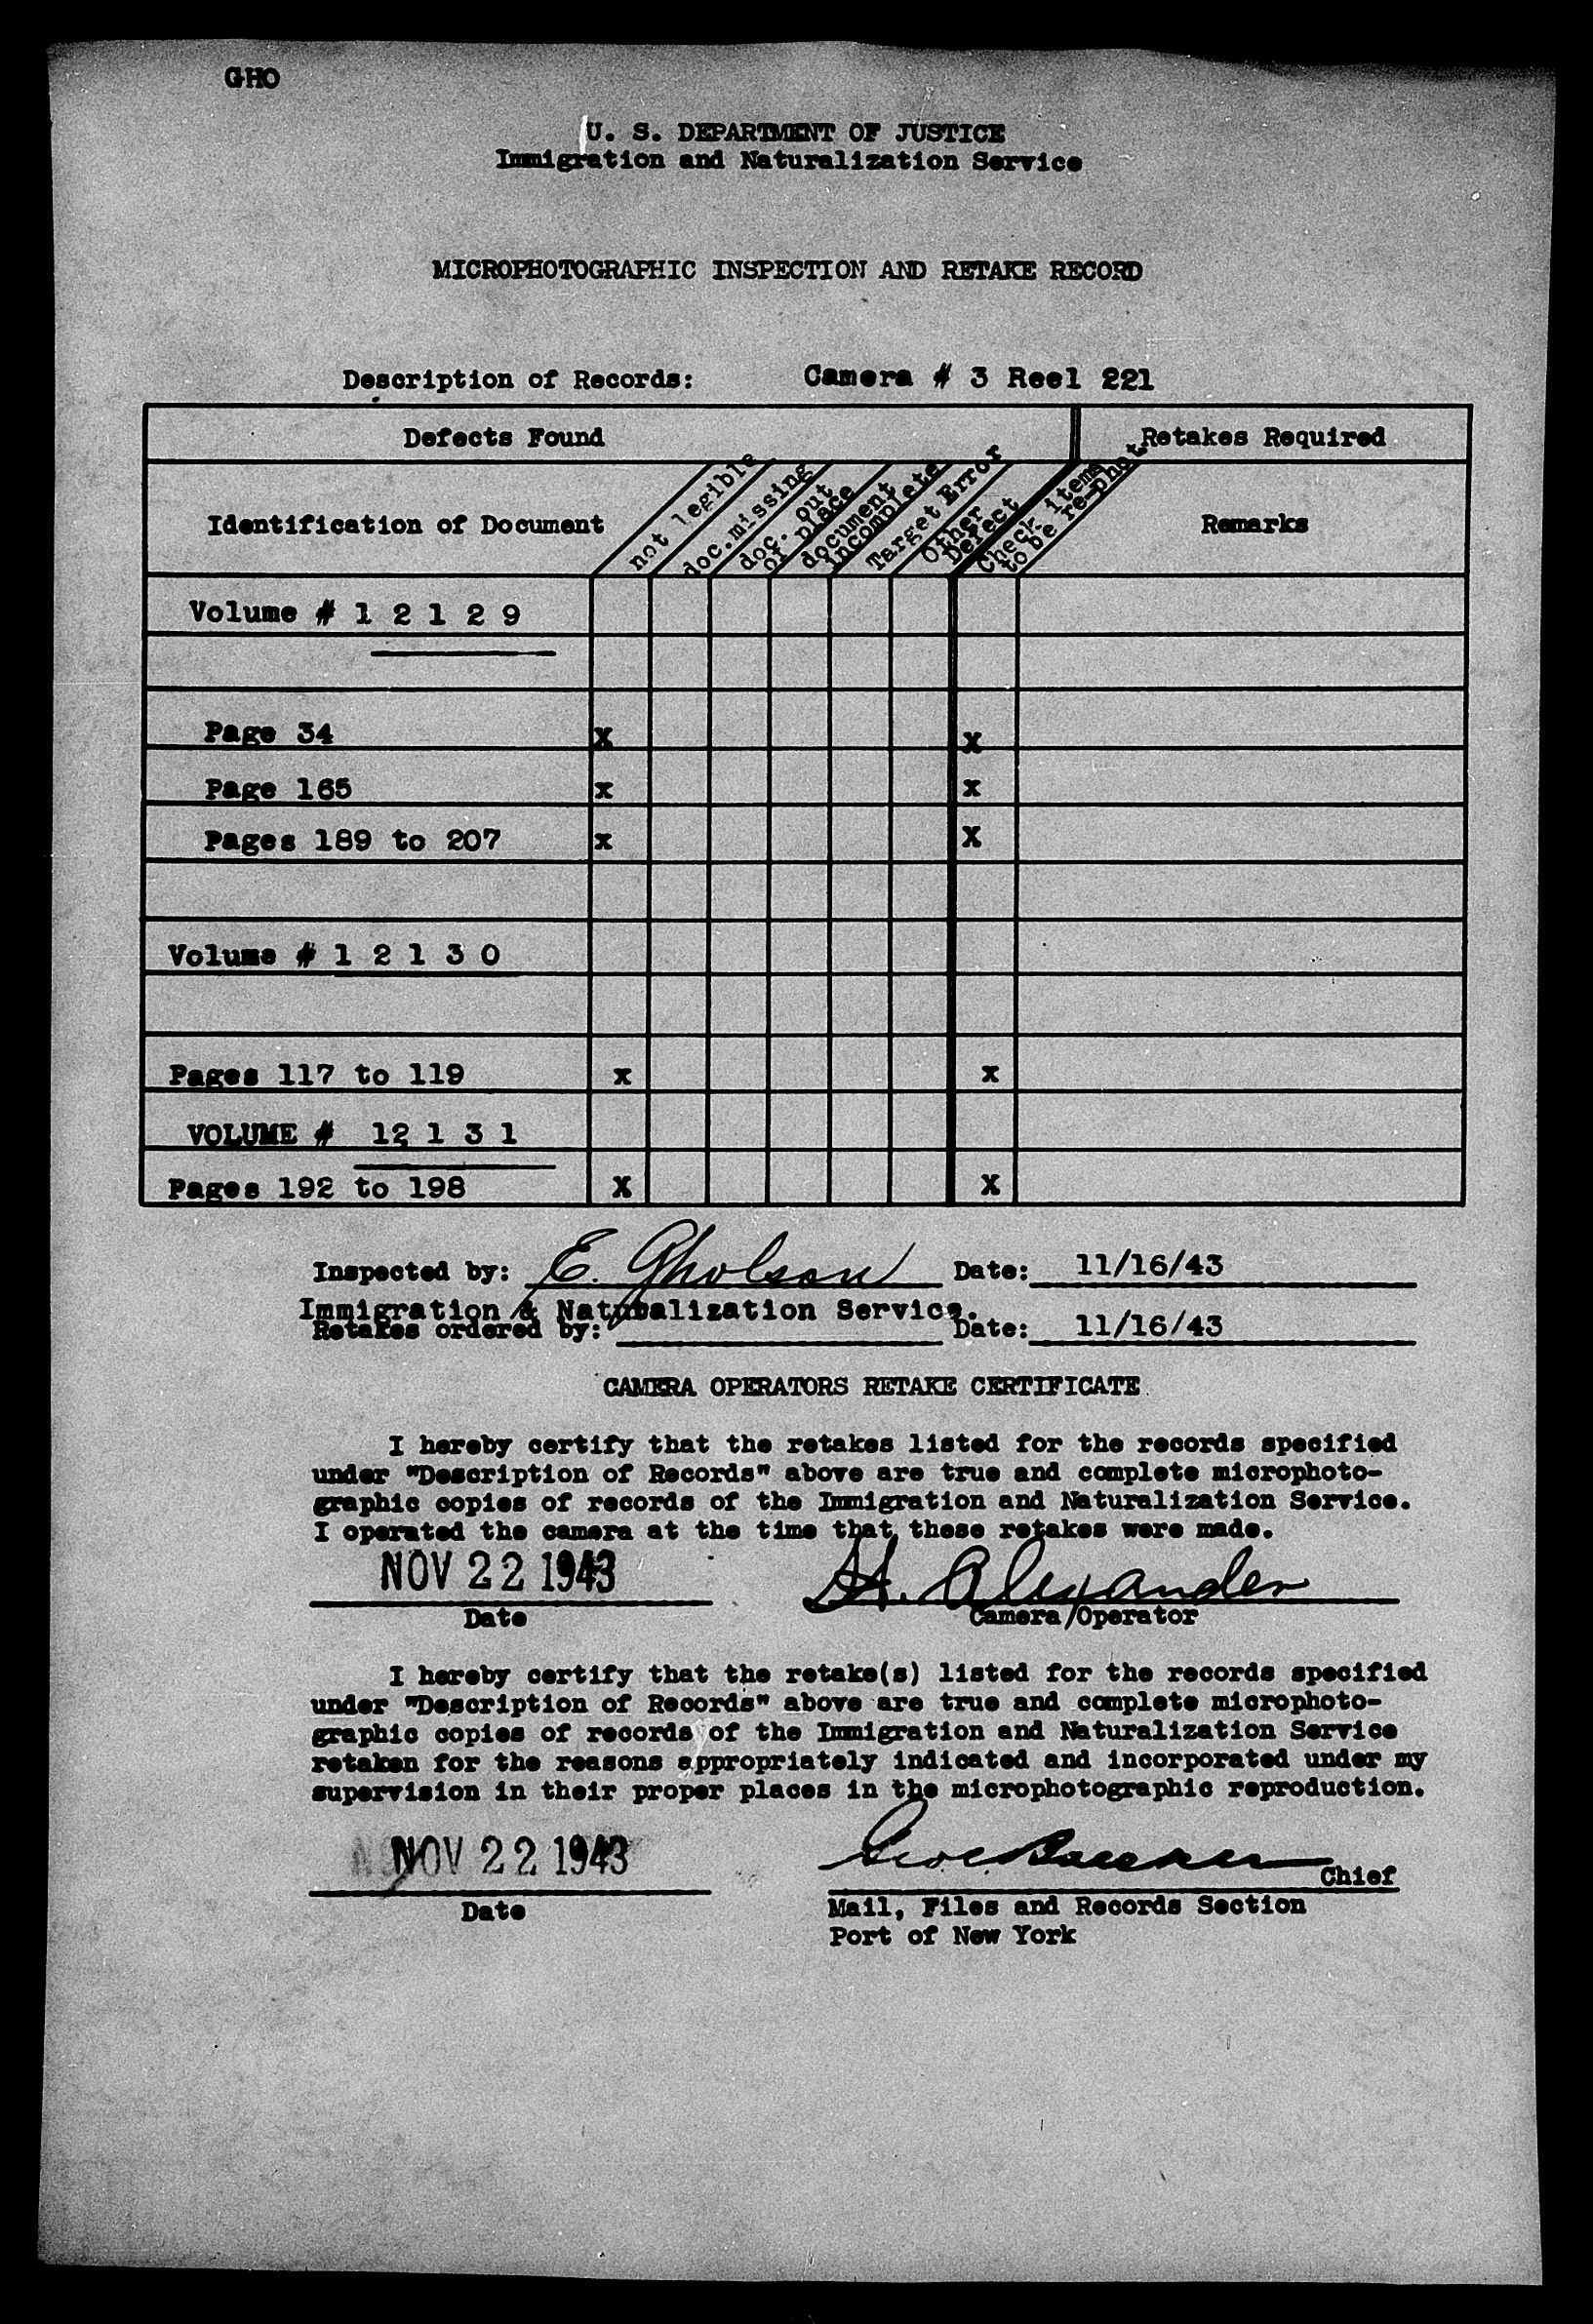 GHO
U. S. DEPARTMENT OF JUSTICE
Immigration and Naturalization Service
MICROPHOTOGRAPHIC INSPECTION AND RETAKE RECORD
Description of Records: Camera # 3 Reel 221
Defects Found Retakes Required
Identification of Document not legible doc.missing doc. out of place document incomplete Target Error Other Defect Check items to be re-phot. Remarks
Volume # 1 2 1 2 9
Page 34 x x
Page 165 x x
Pages 189 to 207 x X
Volume # 1 2 1 3 0
Pages 117 to 119 x x
VOLUME # 12 1 3 1
Pages 192 to 198 X X
Inspected by: E. Gholson Date: 11/16/43
Immigration & Naturalization Service.
Retakes ordered by: Date: 11/16/43
CAMERA OPERATORS RETAKE CERTIFICATE
I hereby certify that the retakes listed for the records specified
under "Description of Records" above are true and complete microphoto-
graphic copies of records of the Immigration and Naturalization Service.
I operated the camera at the time that these retakes were made.
NOV 22 1943 H. Alexander
Date Camera Operator
I hereby certify that the retake(s) listed for the records specified
under "Description of Records" above are true and complete microphoto-
graphic copies of records of the Immigration and Naturalization Service
retaken for the reasons appropriately indicated and incorporated under my
supervision in their proper places in the microphotographic reproduction.
NOV 22 1943
Chief
Date Mail, Files and Records Section
Port of New York